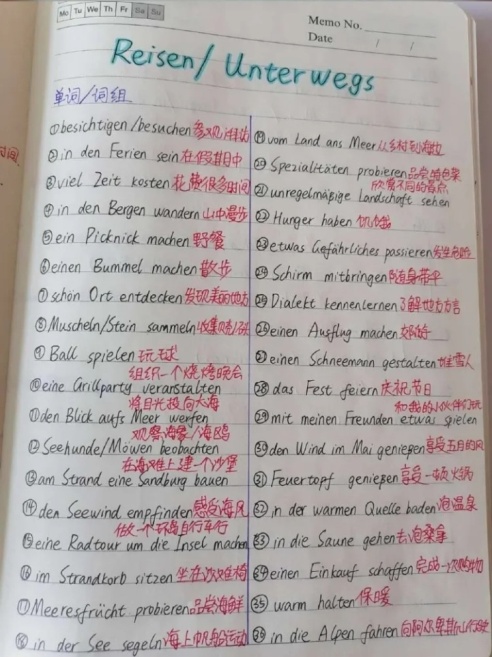 Mo Tu We Th Fr Sa Su
Memo No.
Date / /
Reisen/Unterwegs
单词/词组
①besichtigen/besuchen参观/拜访
②in den Ferien sein在假期中
③viel Zeit kosten花费很多时间
④in den Bergen wandern山中漫步
⑤ein Picknick machen野餐
⑥einen Bummel machen散步
⑦schön Ort entdecken发现美的地方
⑧Muscheln/Stein sammeln收集贝壳/石头
⑨Ball spielen玩球
组织一个烧烤晚会
⑩eine Grillparty veranstalten
将目光投向大海
⑪den Blick aufs Meer werfen
观察海豹/海鸥
⑫Seehunde/Möwen beobachten
在海滩上建一个沙堡
⑬am Strand eine Sandburg bauen
⑭den Seewind empfinden感受海风
做一个环岛自行车行
⑮eine Radtour um die Insel machen
⑯im Strandkorb sitzen坐在沙滩椅
⑰Meeresfrücht probieren品尝海鲜
⑱in der See segeln海上帆船运动
⑲vom Land ans Meer从乡村到海边
⑳Spezialitäten probieren品尝特色菜
欣赏不同的景点
㉑unregelmäßige Landschaft sehen
㉒Hunger haben饥饿
㉓etwas Gefährliches passieren发生危险
㉔Schirm mitbringen随身带伞
Dialekt kennenlernen了解地方方言
einen Ausflug machen郊游
einen Schneemann gestalten堆雪人
㉘das Fest feiern庆祝节日
和我的小伙伴们玩
㉙mit meinen Freunden etwas spielen
㉚den Wind im Mai genießen享受五月的风
㉛Feuertopf genießen享受一顿火锅
㉜in der warmen Quelle baden泡温泉
㉝in die Saune gehen去泡桑拿
㉞einen Einkauf schaffen完成一次购物
㉟warm halten保暖
in die Alpen fahren向阿尔卑斯山行驶